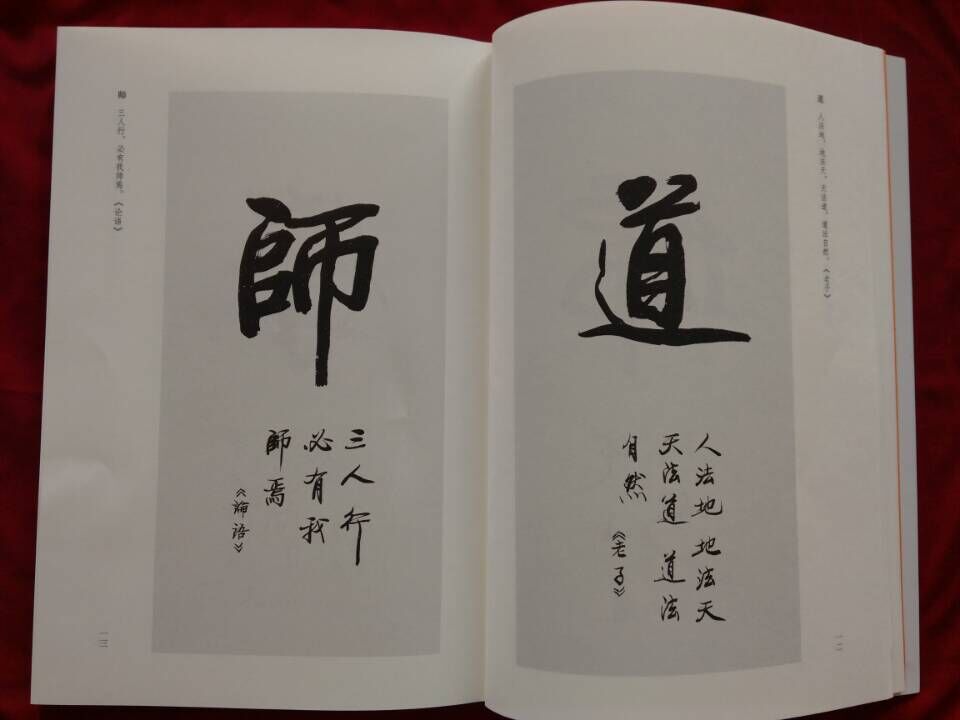 道 人法地，地法天，天法道，道法自然。《老子》
道
人法地 地法天
天法道 道法
自然
《老子》
一二
師 三人行，必有我师焉。《论语》
師
三人行
必有我
師焉
《論語》
一三